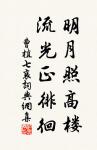 明月照高樓
流光正徘徊
曹植七哀詞典網集